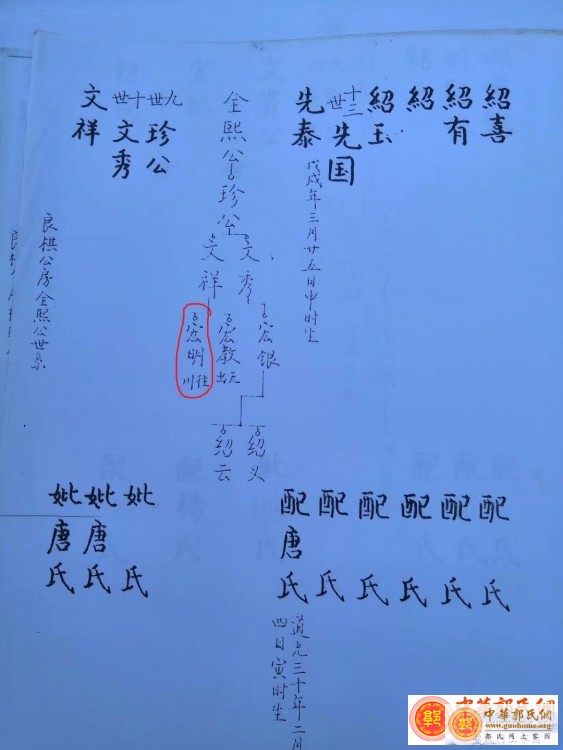 紹喜
紹有
紹
紹玉
十三世 先国
先泰
戊戌年三月廿五日申时生
全熙公
珍公
文秀
文祥
宏银
宏教 出元
宏明 往川
紹义
紹云
九世 珍公
十世 文秀
文祥
良棋公房全熙公世系
配 氏
配 氏
配 氏
配 氏
配 氏
配唐氏
道光三十年二月
四日寅时生
妣 氏
妣唐氏
妣唐氏
中華郭氏網
www.guohome.org
郭氏网上家园